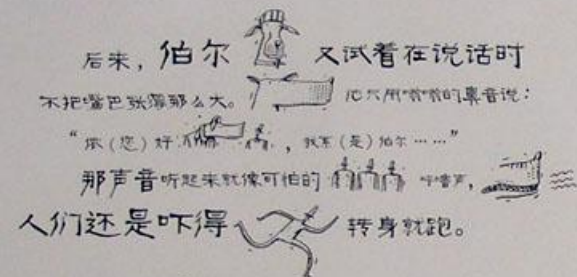 后来，伯尔 又试着在说话时
不把嘴巴张得那么大。 他只用嗡嗡的鼻音说：
“侬（您）好 ，我系（是）伯尔……”
那声音听起来就像可怕的 呼噜声，
人们还是吓得 转身就跑。